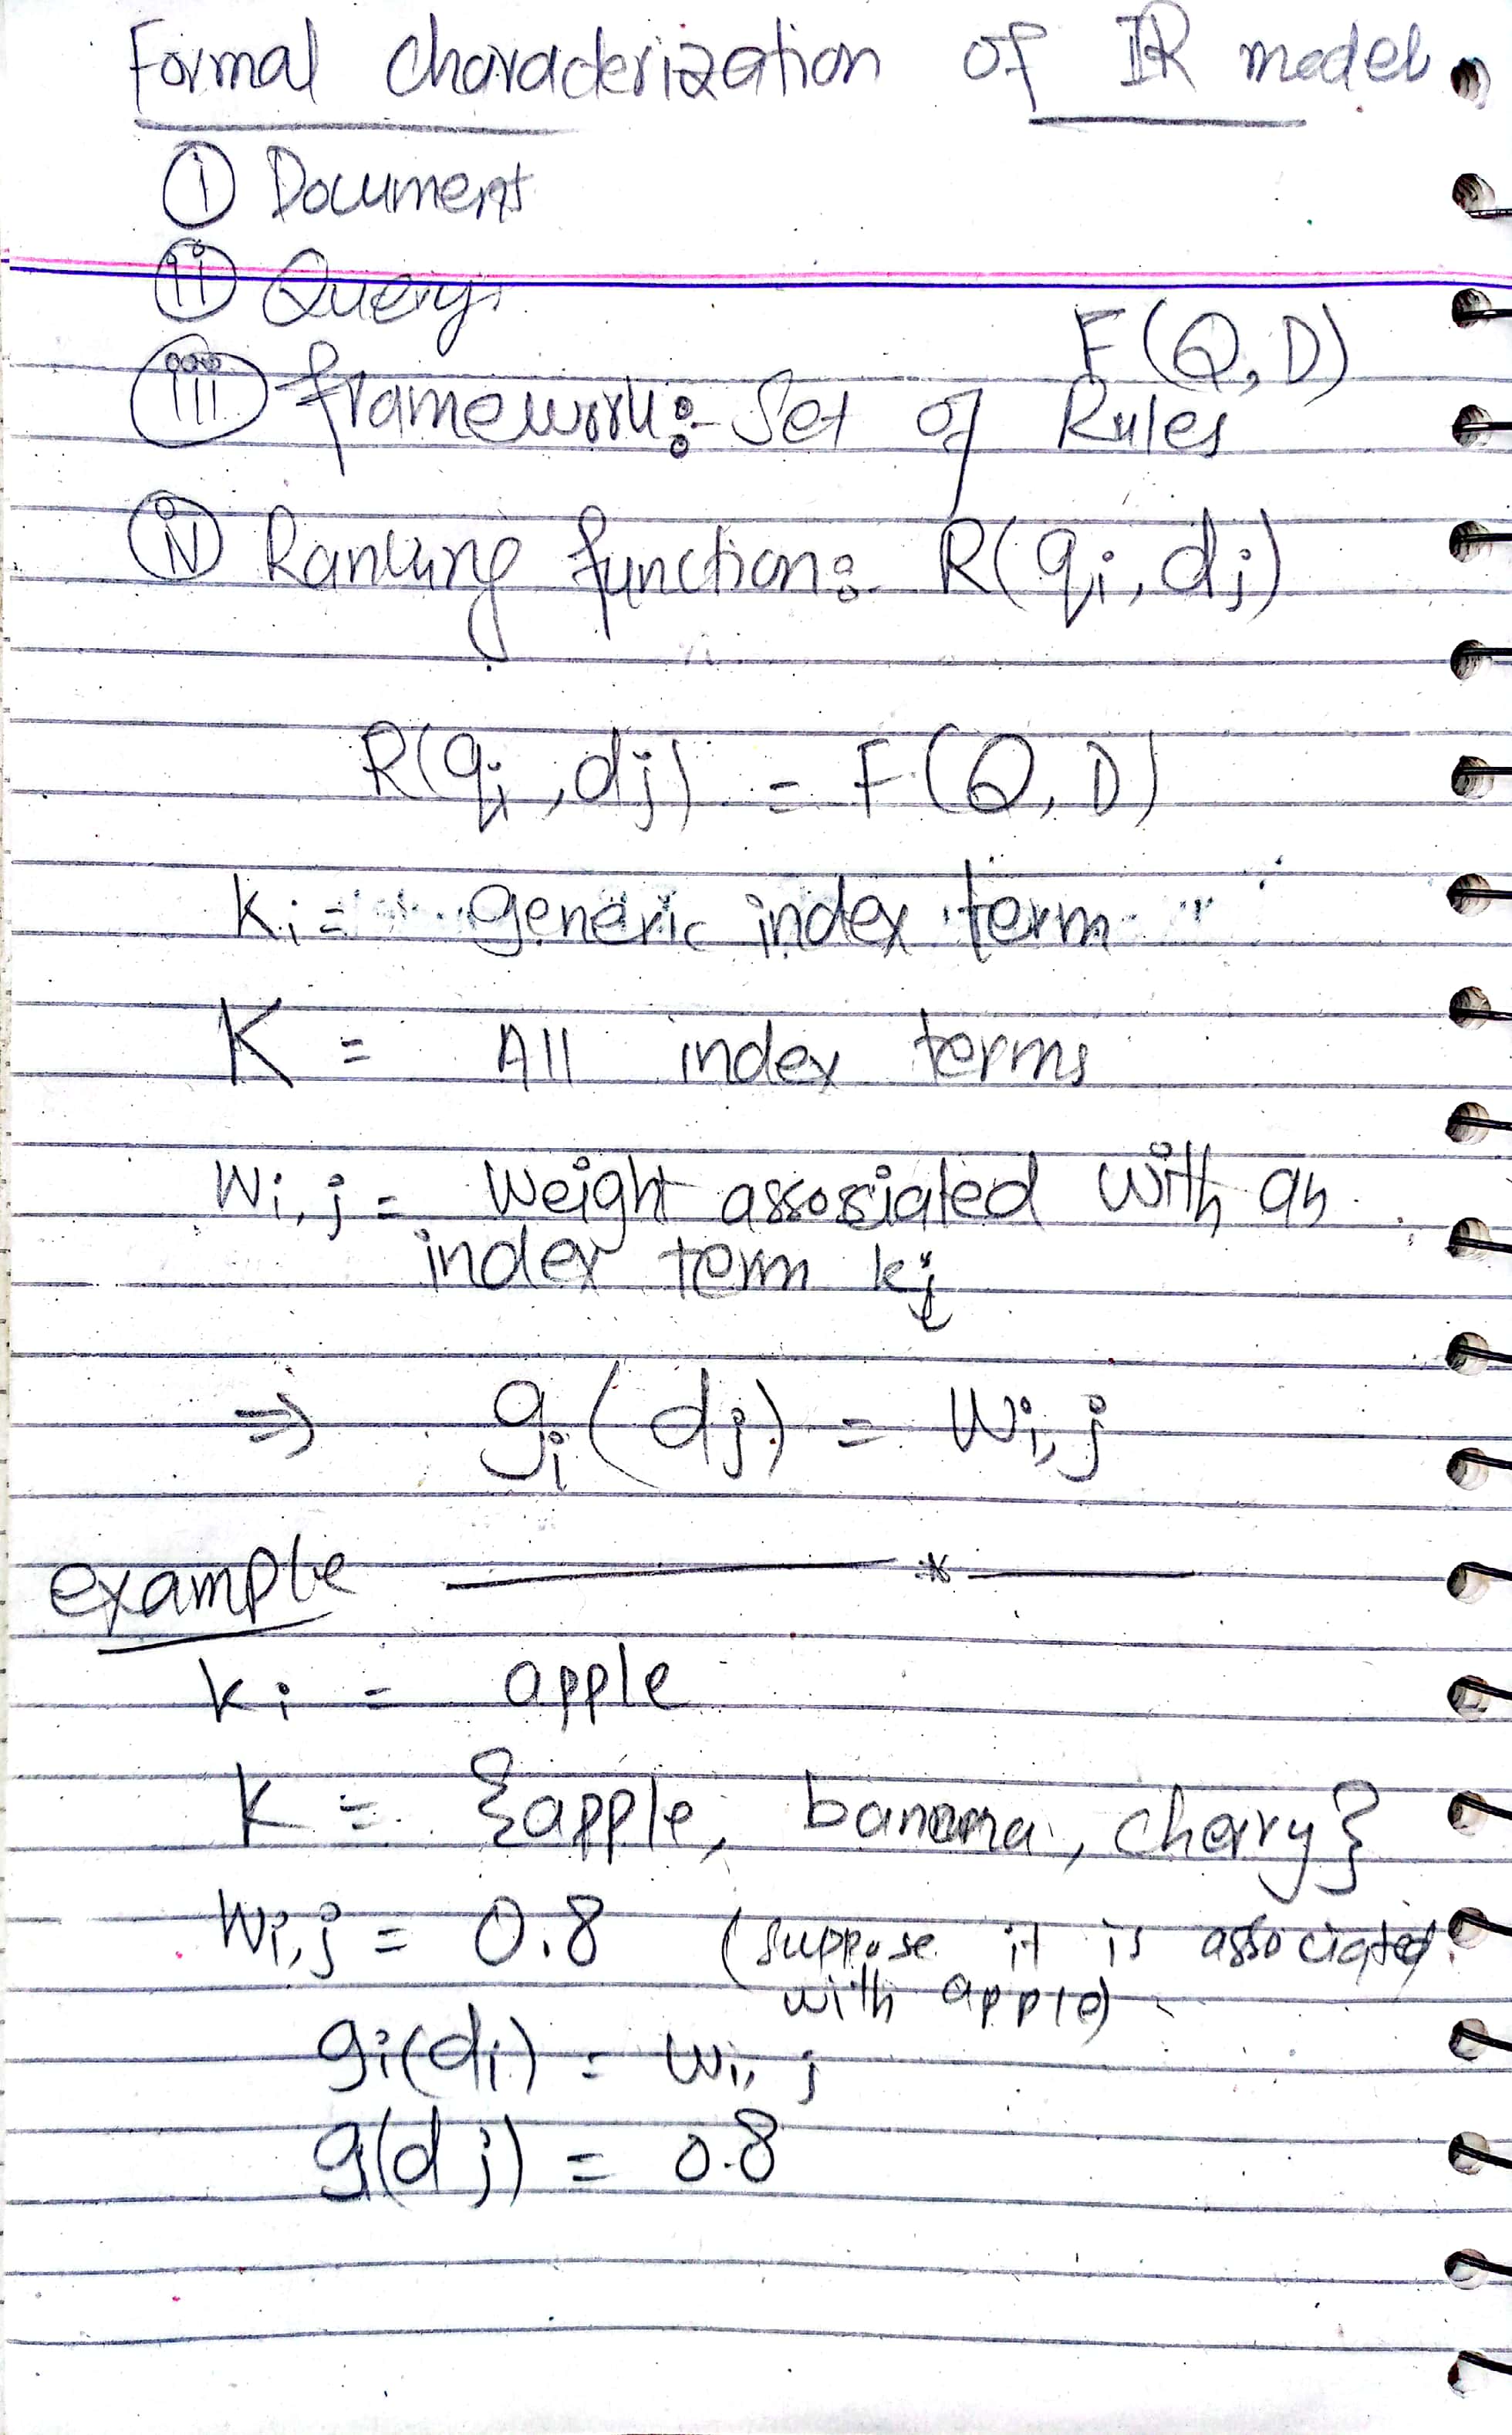 Formal characterization of IR model
(i) Document
(ii) Query
F(Q, D)
(iii) framework:- Set of Rules
(iv) Ranking function:- R(qi, dj)
R(qi, dj) = F(Q, D)
Ki = generic index term
K = All index terms
Wi,j = Weight assosiated with an
index term kj
⇒ gi(dj) = Wi,j
example ——— * ———
ki = apple
K = {apple, banana, cherry}
Wi,j = 0.8 (suppose it is associated
with apple)
gi(di) = wi,j
g(dj) = 0.8